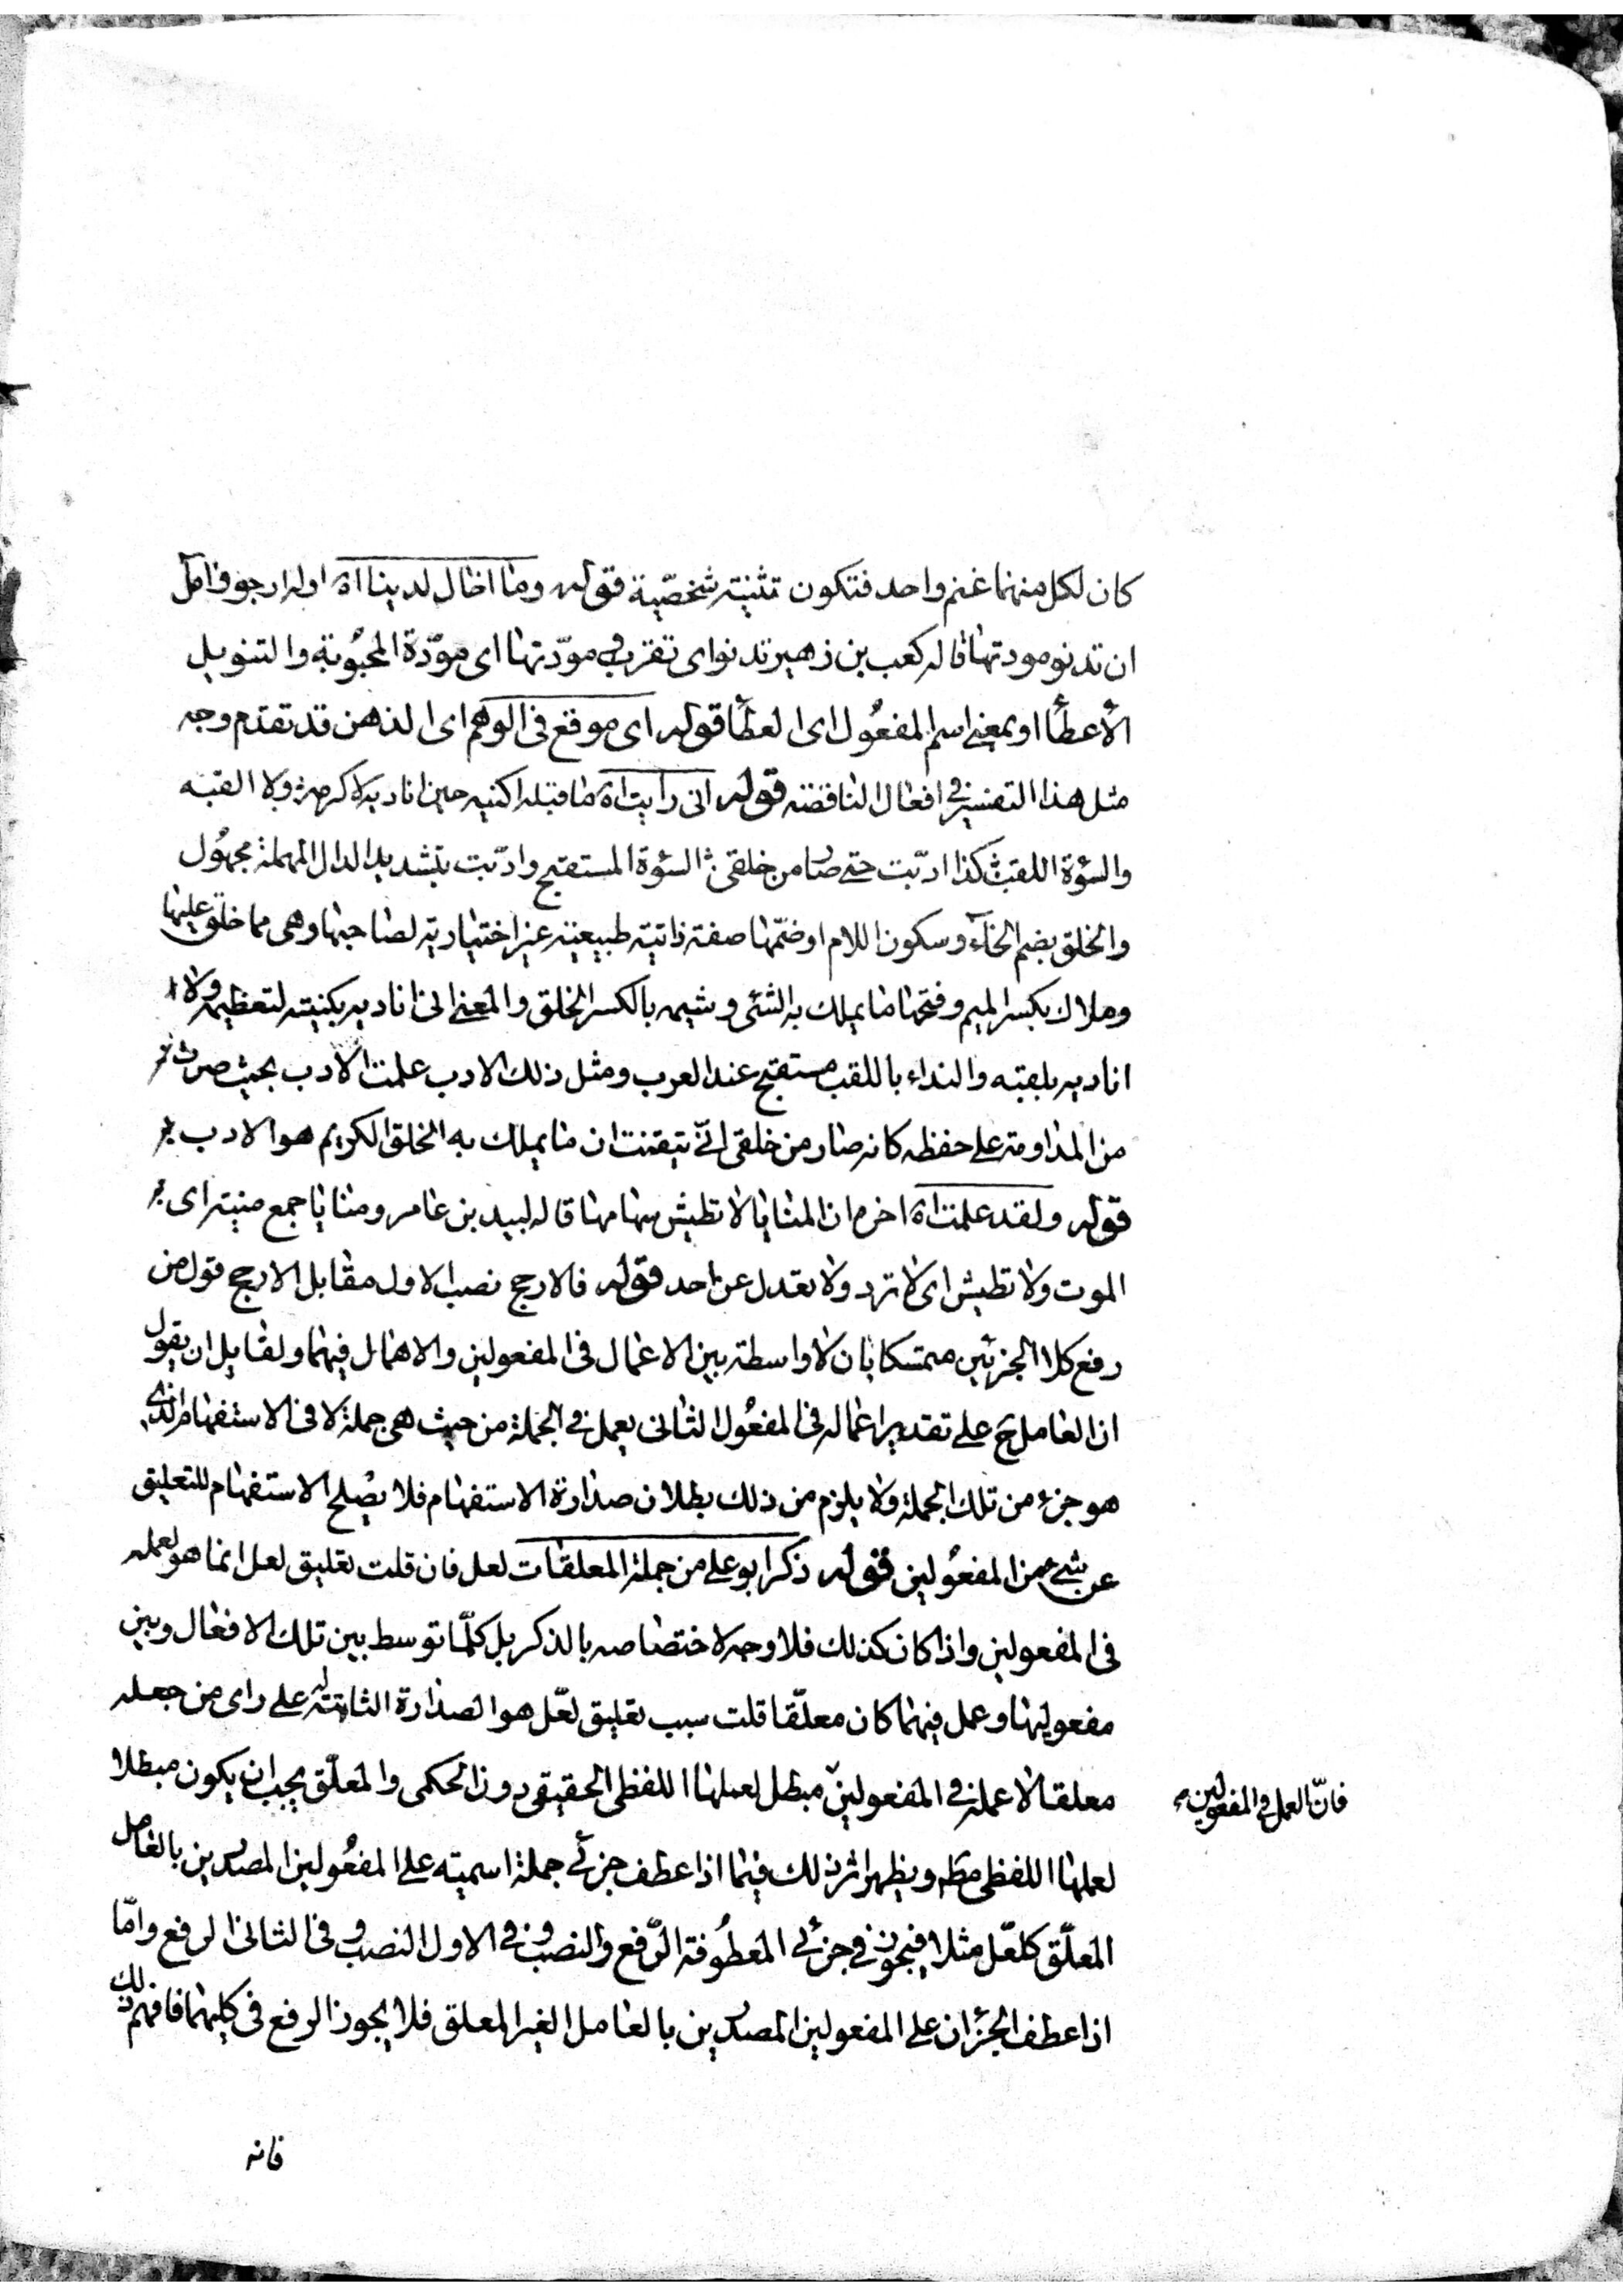 كان لكل منهما غنم واحد فتكون تثنية شخصّية قوله وما اخال لدينا اه اوله ارجو وامل
ان تدنو مودتها قاله كعب بن زهير تدنو اى تقرب مودّتها اى مودّة المحبُوبة والتنويل
الأعطأ او بمعنى اسم المفعُول اى العطأ قوله اى موقع فى الوهم اى الذهن قد تقدم وجه
مثل هذا التفسير فى افعال الناقضة قوله انى رايت اه ما قبله اكنيه حين اناديه لاكرمه ولا القبه
والسؤة اللقب كذا ادّبت حتى صار من خلقى السؤة المستقبح وادّبت بتشديد الدال المهملة مجهُول
والخلق بضم الخآء وسكون اللام او ضمّها صفة ذاتية طبيعية غير اختيارية لصاحبها وهى مما خلق عليها
وملاك بكسر الميم وفتحها ما يملك به الشئ وشيمه بالكسر الخلق والمعنى انى اناديه بكنيته لتعظيمه ولا
اناديه بلقبه والنداء باللقب مستقبح عند العرب ومثل ذلك الادب علمت الادب بحيث صرت
من المداومة على حفظه كانه صار من خلقى انّى تيقنت ان ما يملك به الخلق الكريم هو الادب
قوله ولقد علمت اه اخره ان المنايا لا تطيش سهامها قاله لبيد بن عامر ومنايا جمع منية اى
الموت ولا تطيش اى لا ترد ولا تعدل عن احد قوله فالارجح نصب الاول مقابل الارجح قول من
رفع كلا الجزئين متمسكا بان لا واسطة بين الاعمال فى المفعولين والاهمال فيهما ولقايل ان يقول
ان العامل ح على تقدير اعماله فى المفعُول الثانى يعمل فى الجملة من حيث هى جملة لا فى الاستفهام الذى
هو جزء من تلك الجملة ولا يلزم من ذلك بطلان صدارة الاستفهام فلا يصُلح الاستفهام للتعليق
عن شئ من المفعُولين قوله ذكر ابو على من جملة المعلقات لعل فان قلت تعليق لعل انما هو لعمله
فى المفعولين واذا كان كذلك فلا وجه لاختصاصه بالذكر بل كلّما توسط بين تلك الافعال وبين
مفعوليها وعمل فيهما كان معلّقا قلت سبب تعليق لعّل هو الصدارة الثابتة له على راى من جعله
معلقا لا عمله فى المفعولين مبطل لعملها اللفظى الحقيقى دون الحكمى والمعلّق يجب ان يكون مبطلا
فانّ العمل فى المفعولين
لعملها اللفظى مطم ويظهر اثر ذلك فيما اذا عطف جزئى جملة اسميته على المفعُولين المصدرين بالعامل
المعلّق كلعّل مثلا فيجوز فى جزئى المعطُوفة الرّفع والنصب وفى الاول النصب وفى الثانى الرفع وامّا
اذا عطف الجزأن على المفعولين المصدرين بالعامل الغير المعلق فلا يجوز الرفع فى كليهما فافهم ذلك
فانه